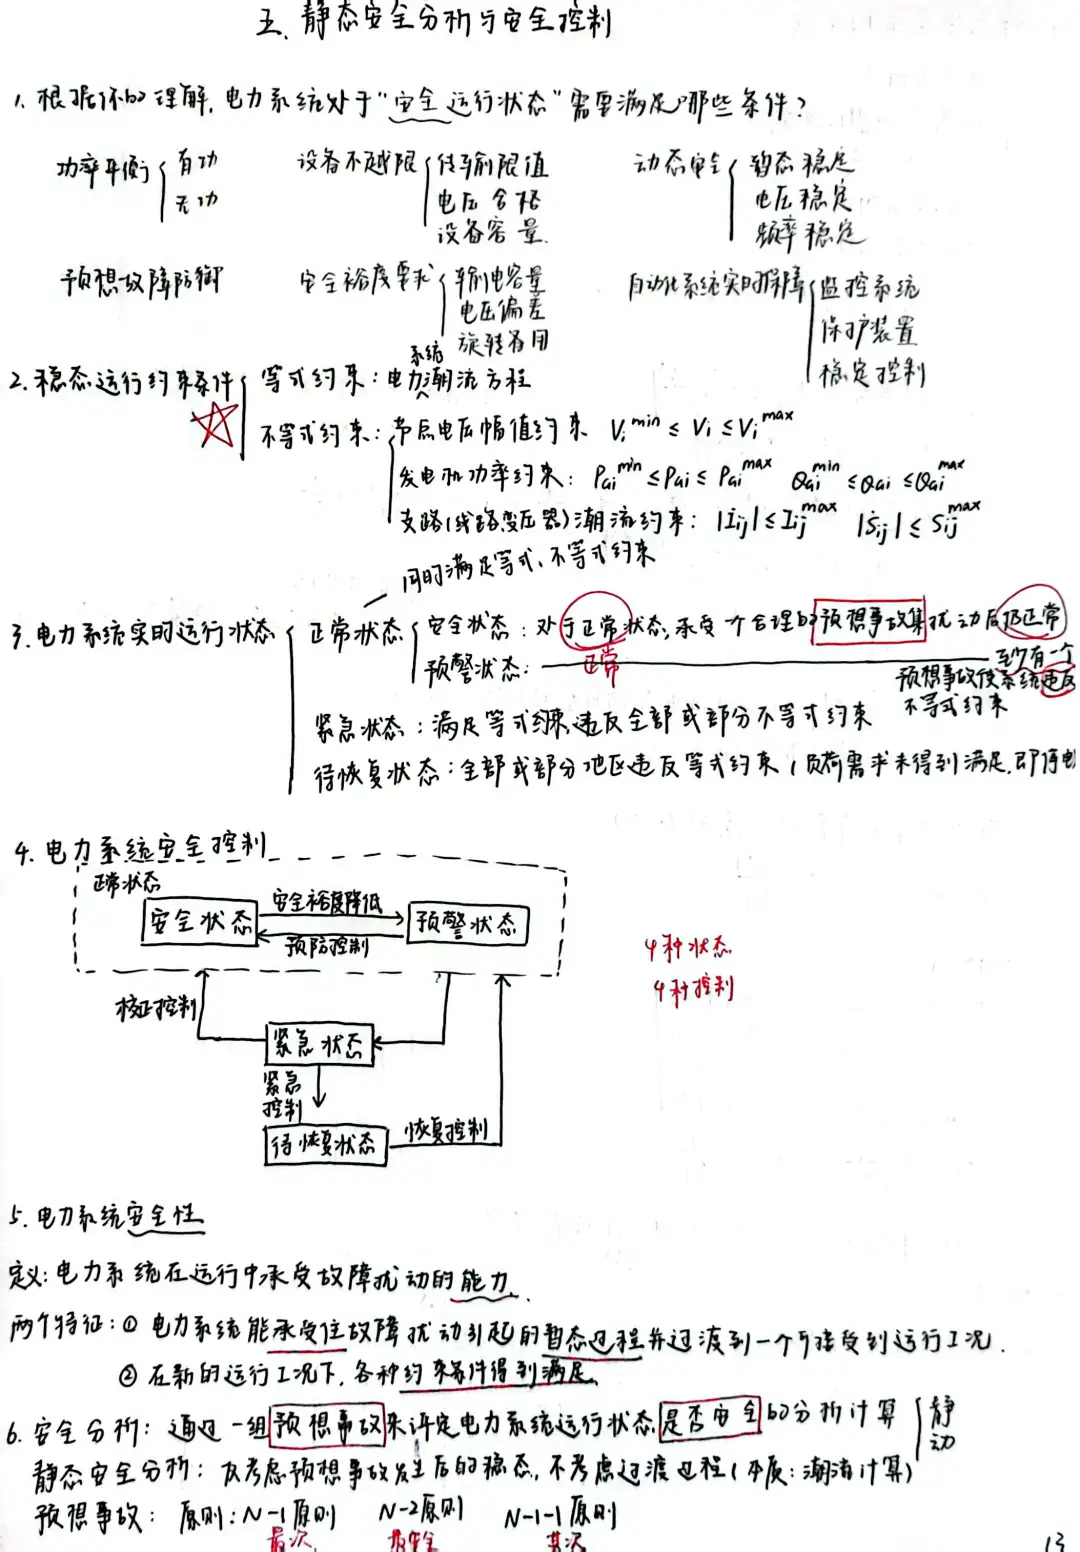 五、静态安全分析与安全控制
1. 根据你的理解,电力系统处于"安全运行状态"需要满足哪些条件?
功率平衡 有功 设备不越限 传输限值 动态安全 暂态稳定
无功 电压合格 电压稳定
设备容量 频率稳定
预想故障防御 安全裕度要求 输电容量 自动化系统实时保障 监控系统
电压偏差 保护装置
旋转备用 稳定控制
系统
2. 稳态运行约束条件 等式约束:电力潮流方程
不等式约束:节点电压幅值约束 Vi^min ≤ Vi ≤ Vi^max
发电机功率约束: PGi^min ≤ PGi ≤ PGi^max QGi^min ≤ QGi ≤ QGi^max
支路(线路变压器)潮流约束: |İij| ≤ Iij^max |Ṡij| ≤ Sij^max
同时满足等式、不等式约束
3. 电力系统实时运行状态 正常状态 安全状态:处于正常状态,承受一个合理的预想事故集扰动后仍正常
预警状态: 正常 至少有一个
预想事故使系统违反
不等式约束
紧急状态:满足等式约束,违反全部或部分不等式约束
待恢复状态:全部或部分地区违反等式约束(负荷需求未得到满足,即停电
4. 电力系统安全控制
正常状态
安全状态 安全裕度降低 预警状态
预防控制
4种状态
4种控制
校正控制
紧急状态
紧急
控制
待恢复状态 恢复控制
5. 电力系统安全性
定义:电力系统在运行中承受故障扰动的能力.
两个特征:① 电力系统能承受住故障扰动引起的暂态过程并过渡到一个可接受到运行工况.
② 在新的运行工况下,各种约束条件得到满足
6. 安全分析: 通过一组预想事故来评定电力系统运行状态是否安全的分析计算 静
动
静态安全分析: 仅考虑预想事故发生后的稳态,不考虑过渡过程(本质:潮流计算)
预想事故: 原则:N-1原则 N-2原则 N-1-1原则
最次 最安全 其次
13